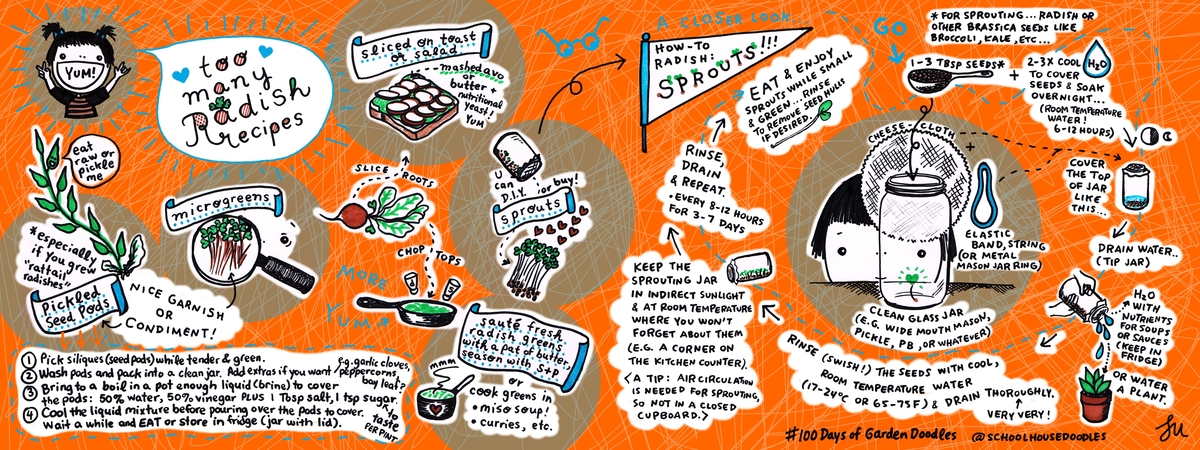 YUM!
too
many
Radish
Recipes
sliced on toast
or salad
mashed avo
or
butter +
nutritional
yeast!
YUM
eat
raw or
pickle
me
microgreens
*especially
if you grew
"rattail"
radishes"
Pickled
Seed Pods
NICE GARNISH
OR
CONDIMENT!
SLICE ROOTS
CHOP TOPS
MORE
YUM
U
can
D.I.Y. or buy!
sprouts
sauté fresh
radish greens
with a pat of butter,
season with S+P
mmm
or
cook greens in
• miso soup!
• curries, etc.
1 Pick siliques (seed pods) while tender & green.
2 Wash pods and pack into a clean jar. Add extras if you want
e.g. garlic cloves,
peppercorns,
bay leaf?
3 Bring to a boil in a pot enough liquid (brine) to cover
the pods: 50% water, 50% vinegar PLUS 1 Tbsp salt, 1 tsp sugar
or to
taste
PER PINT
4 Cool the liquid mixture before pouring over the pods to cover.
Wait a while and EAT or store in fridge (jar with lid).
A CLOSER LOOK...
HOW-TO
RADISH:
SPROUTS!!!
GO
*FOR SPROUTING... RADISH OR
OTHER BRASSICA SEEDS LIKE
BROCCOLI, KALE, ETC...
1-3 TBSP SEEDS*
+
2-3X COOL
H₂O
TO COVER
SEEDS & SOAK
OVERNIGHT...
(ROOM TEMPERATURE
WATER!
6-12 HOURS)
CHEESE-CLOTH
+
ELASTIC
BAND, STRING
(OR METAL
MASON JAR RING)
COVER
THE TOP
OF JAR
LIKE
THIS...
CLEAN GLASS JAR
(E.G. WIDE MOUTH MASON,
PICKLE, PB, OR WHATEVER)
DRAIN WATER..
(TIP JAR)
H₂O
WITH
NUTRIENTS
FOR SOUPS
OR SAUCES
(KEEP IN
FRIDGE)
OR WATER
A PLANT.
RINSE (SWISH!) THE SEEDS WITH COOL,
ROOM TEMPERATURE WATER
(17-24°C OR 65-75F) & DRAIN THOROUGHLY.
VERY VERY!
KEEP THE
SPROUTING JAR
IN INDIRECT SUNLIGHT
& AT ROOM TEMPERATURE
WHERE YOU WON'T
FORGET ABOUT THEM
(E.G. A CORNER ON
THE KITCHEN COUNTER).
<A TIP: AIR CIRCULATION
IS NEEDED FOR SPROUTING,
SO NOT IN A CLOSED
CUPBOARD.>
RINSE,
DRAIN
& REPEAT.
• EVERY 8-12 HOURS
FOR 3-7 DAYS
EAT & ENJOY
SPROUTS WHILE SMALL
& GREEN... RINSE
TO REMOVE SEED HULLS
IF DESIRED.
#100 Days of Garden Doodles @SCHOOLHOUSEDOODLES